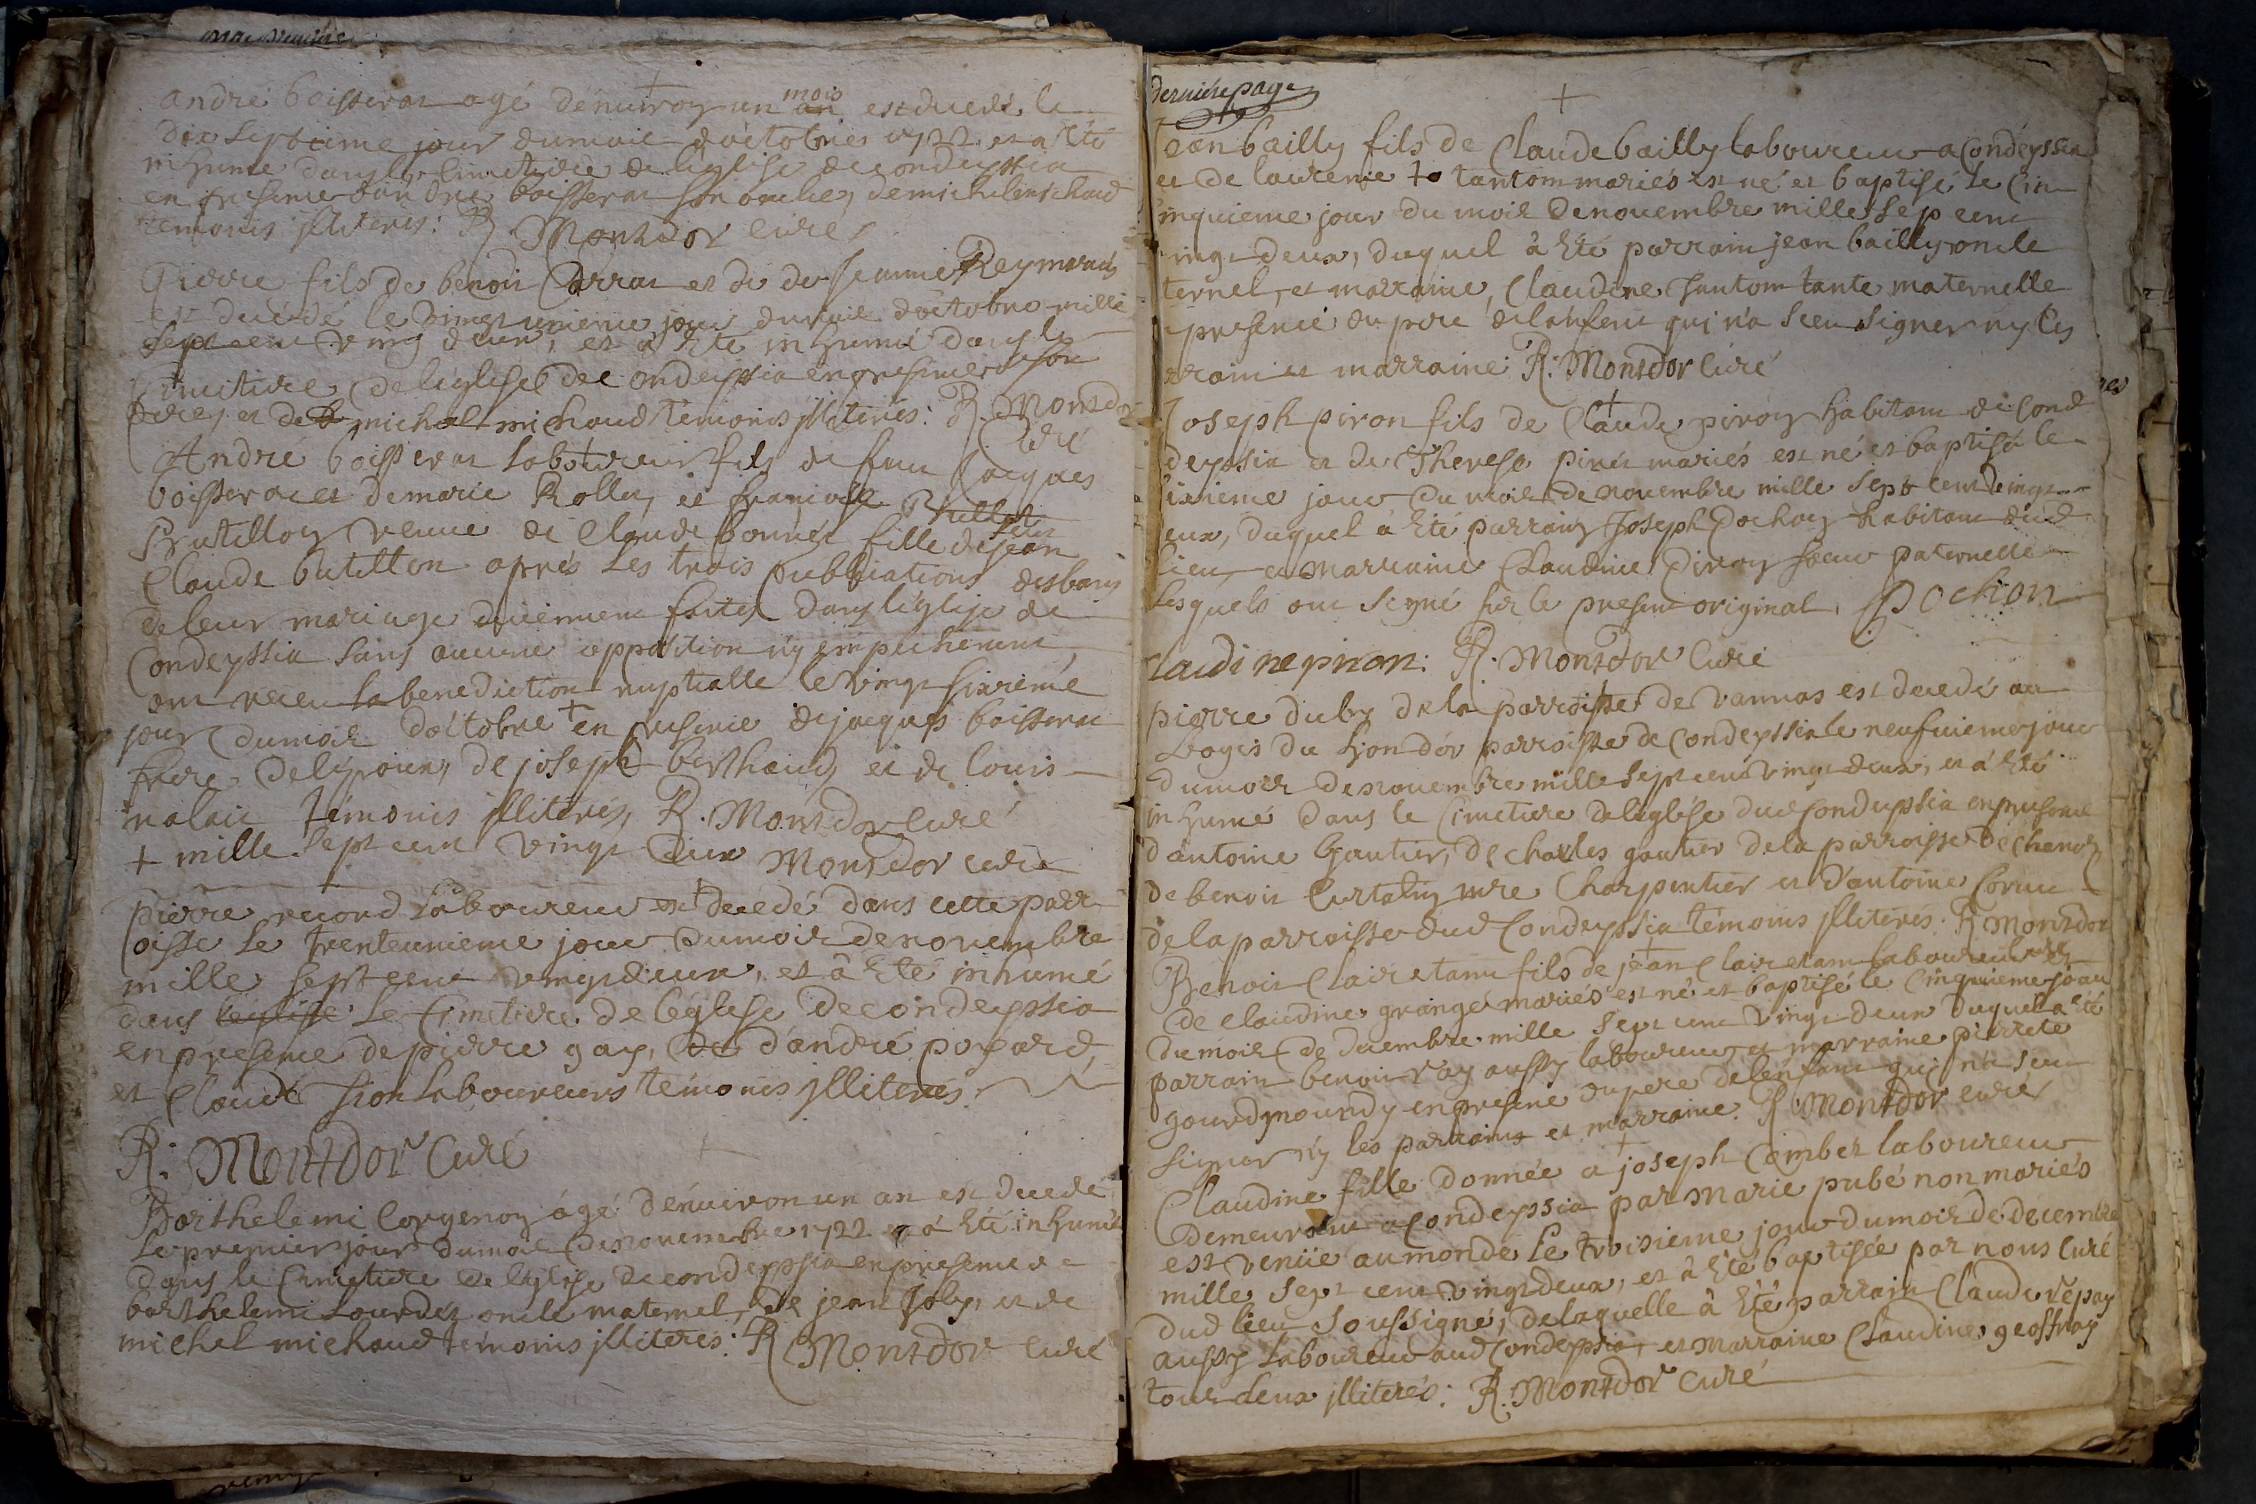 andré boisserat agé dénuiron un mois est decedé le
dix septieme jour dumois doctobre 1722 et a Eté
inhumé dans le Cimetiere de léglise decondeyssia
en presence dandré boisserat son oncle, demichel michaud
temoins jlliterés: R. Montdor curé
Pierre fils de benoit Carrat et de de Jeanne Reymond
est decedé le vingt unieme jour dumois doctobre mille
Sept cent vingt deux, et à Eté inhumé dans le
Cimetiere deléglise decondeyssia enpresence de son
pere, et de michel michaud témoins jlliterés: R. Montdor
Curé
André boisserat laboureur fils de feu Jacques
boisserat et demarie Rollet, et françoise
Butillon veuve de Claude bonnet fille de jean
Claude butillon aprés les trois publications des bans
deleur mariage düement faites dans léglise de
Condeyssia sans aucune opposition ny empechement,
ont receu la benediction nuptialle le vingt sixieme
jour dumois doctobre + en presence de jacques boisserat
frere deliepoux, de joseph berthaud, et de louis
malais témoins jlliterés, R. Montdor Curé
+ mille sept cent vingt deux Montdor curé
pierre recond laboureur est decedé dans cette parr
oisse le trenteunieme jour dumois denovembre
mille sept cent vingt deux, et à Eté inhumé
dans léglise le Cimetiere de léglise decondeyssia
enpresence depierre gay, de d'andré poyard,
et Claude sion laboureurs témoins jlliterés
R: Montdor Curé
Barthelemi Corgenon ágé dénuiron un an est decedé
le premier jour dumois denovembre 1722 et à Eté inhumé
dans le Cimetiere de léglise decondeyssia enpresence de
barthelemi lourdet oncle maternel, de jean Joly, et de
michel michaud témoins jlliterés: R Montdor curé
derniére page
Jean bailly fils de Claude bailly laboureur a Condeyssia
et de laurence tantom mariés est né et baptisé le Cin
inquieme jour du mois denovembre mille sept cent
vingt deux, duquel à Eté parrain jean bailly oncle
ternel, et marraine, Claudine tantom tante maternelle
presence du pere delenfant qui n'a sceu signer ny les
rrain et marraine R: Montdor Curé
Joseph piron fils de Claude piron habitant de Cond
deyssia et de Therese piret mariés est né et baptisé le
sixieme jour du mois denovembre mille sept cent vingt
eux, duquel à Eté parrain Joseph Pochon habitant dud
lieu et marraine Claudine Piron soeur paternelle
lesquels ont signé sur le present original, J Pochon
laudine piron: R: Montdor Curé
pierre duby de la parroisse de vannas est decedé au
Logis du Lyon dór parroisse de Condeyssia le neufuieme jour
dumois denovembre mille sept cent vingt deux, et à Eté
inhumé dans le Cimetiere deléglise dud Condeyssia enpresence
d'antoine Gautier, de charles gautier dela parroisse de
de benoit Curtalin mre Charpentier et d'antoine
delaparroisse dud Condeyssia témoins jlliterés: R Montdor
Benoit Clairetant fils de jean Clairetant laboureur et
de claudine grangé mariés est né et baptisé le Cinquieme jour
dumois de decembre mille sept cent vingt deux duquel a Eté
parrain benoit ray aussy laboureur et marraine pierrete
gourdmoundy enpresence dupere delénfant qui n'à sceu
signer ny les parrains et marraine. R Montdor curé
Claudine fille donnée a joseph Combet laboureur
demeurant a Condeyssia par marie pubé non mariés
est venüe aumonde le troisieme jour dumois de decembre
mille sept cent vingt deux, et à Eté baptisée par nous Curé
dud lieu soussigné, delaquelle à Eté parrain Claude repay
aussy laboureur aud Condeyssia, et marraine Claudine geoffray
tous deux jlliterés: R. Montdor Curé